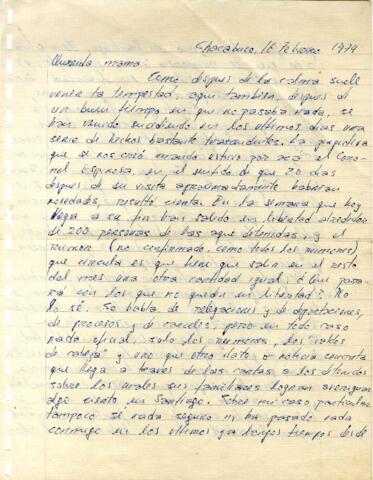 Chacabuco, 16 Febrero 1974
Querida mamá:
Como después de la calma suele
venir la tempestad, aquí también, después de
un buen tiempo en que no pasaba nada, se
han venido sucediendo en los últimos días una
serie de hechos bastante trascendentes. La perspectiva
que se nos creó cuando estuvo por acá el Coro-
nel Espinosa, en el sentido de que 20 días
después de su visita aproximadamente habrían
novedades, resultó cierta. En la semana que hoy
llega a su fin han salido en libertad alrededor
de 200 personas de las aquí detenidas, y el
rumor (no confirmado, como todos los rumores)
que circula es que tiene que salir en el resto
del mes una otra cantidad igual; ¿Qué pasa-
rá con los que no quedan en libertad? No
lo sé. Se habla de relegaciones y de deportaciones,
de procesos y de cárceles, pero en todo caso
nada oficial, solo los rumores, los
de y uno que otro dato o noticia concreta
que llega a través de las cartas a los detenidos
sobre los cuales sus familiares logran averiguar
algo cierto en Santiago. Sobre mi caso particular
tampoco sé nada seguro ni ha pasado nada
conmigo en los últimos ya largos tiempos desde